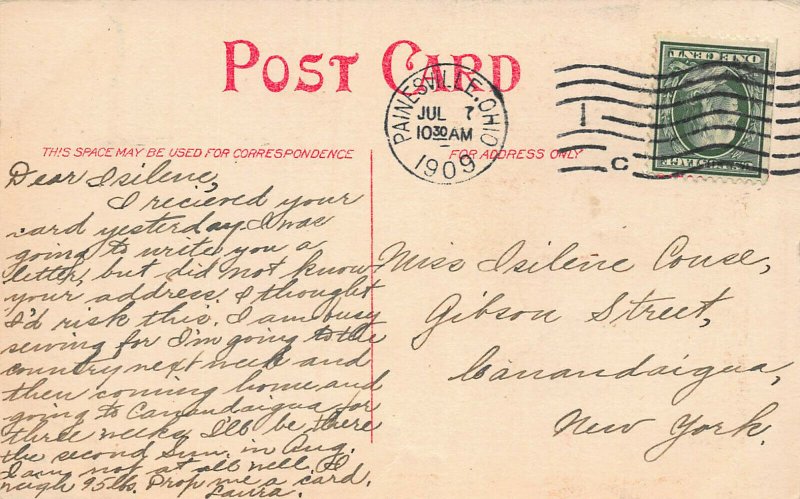 POST CARD
PAINESVILLE, OHIO
JUL 7
10 30 AM
1909
1
C
ONE CENT
THIS SPACE MAY BE USED FOR CORRESPONDENCE
FOR ADDRESS ONLY
Dear Isilene,
I recieved your
card yesterday. I was
going to write you a
letter, but did not know
your address. I thought
I'd risk this. I am busy
sewing for I'm going to the
country next week and
then coming home and
going to Canandaigua for
three weeks. I'll be there
the second Sun. in Aug.
I am not at all well. I
weigh 95 lbs. Drop me a card.
Laura.
Miss Isilene Couse,
Gibson Street,
Canandaigua,
New York.